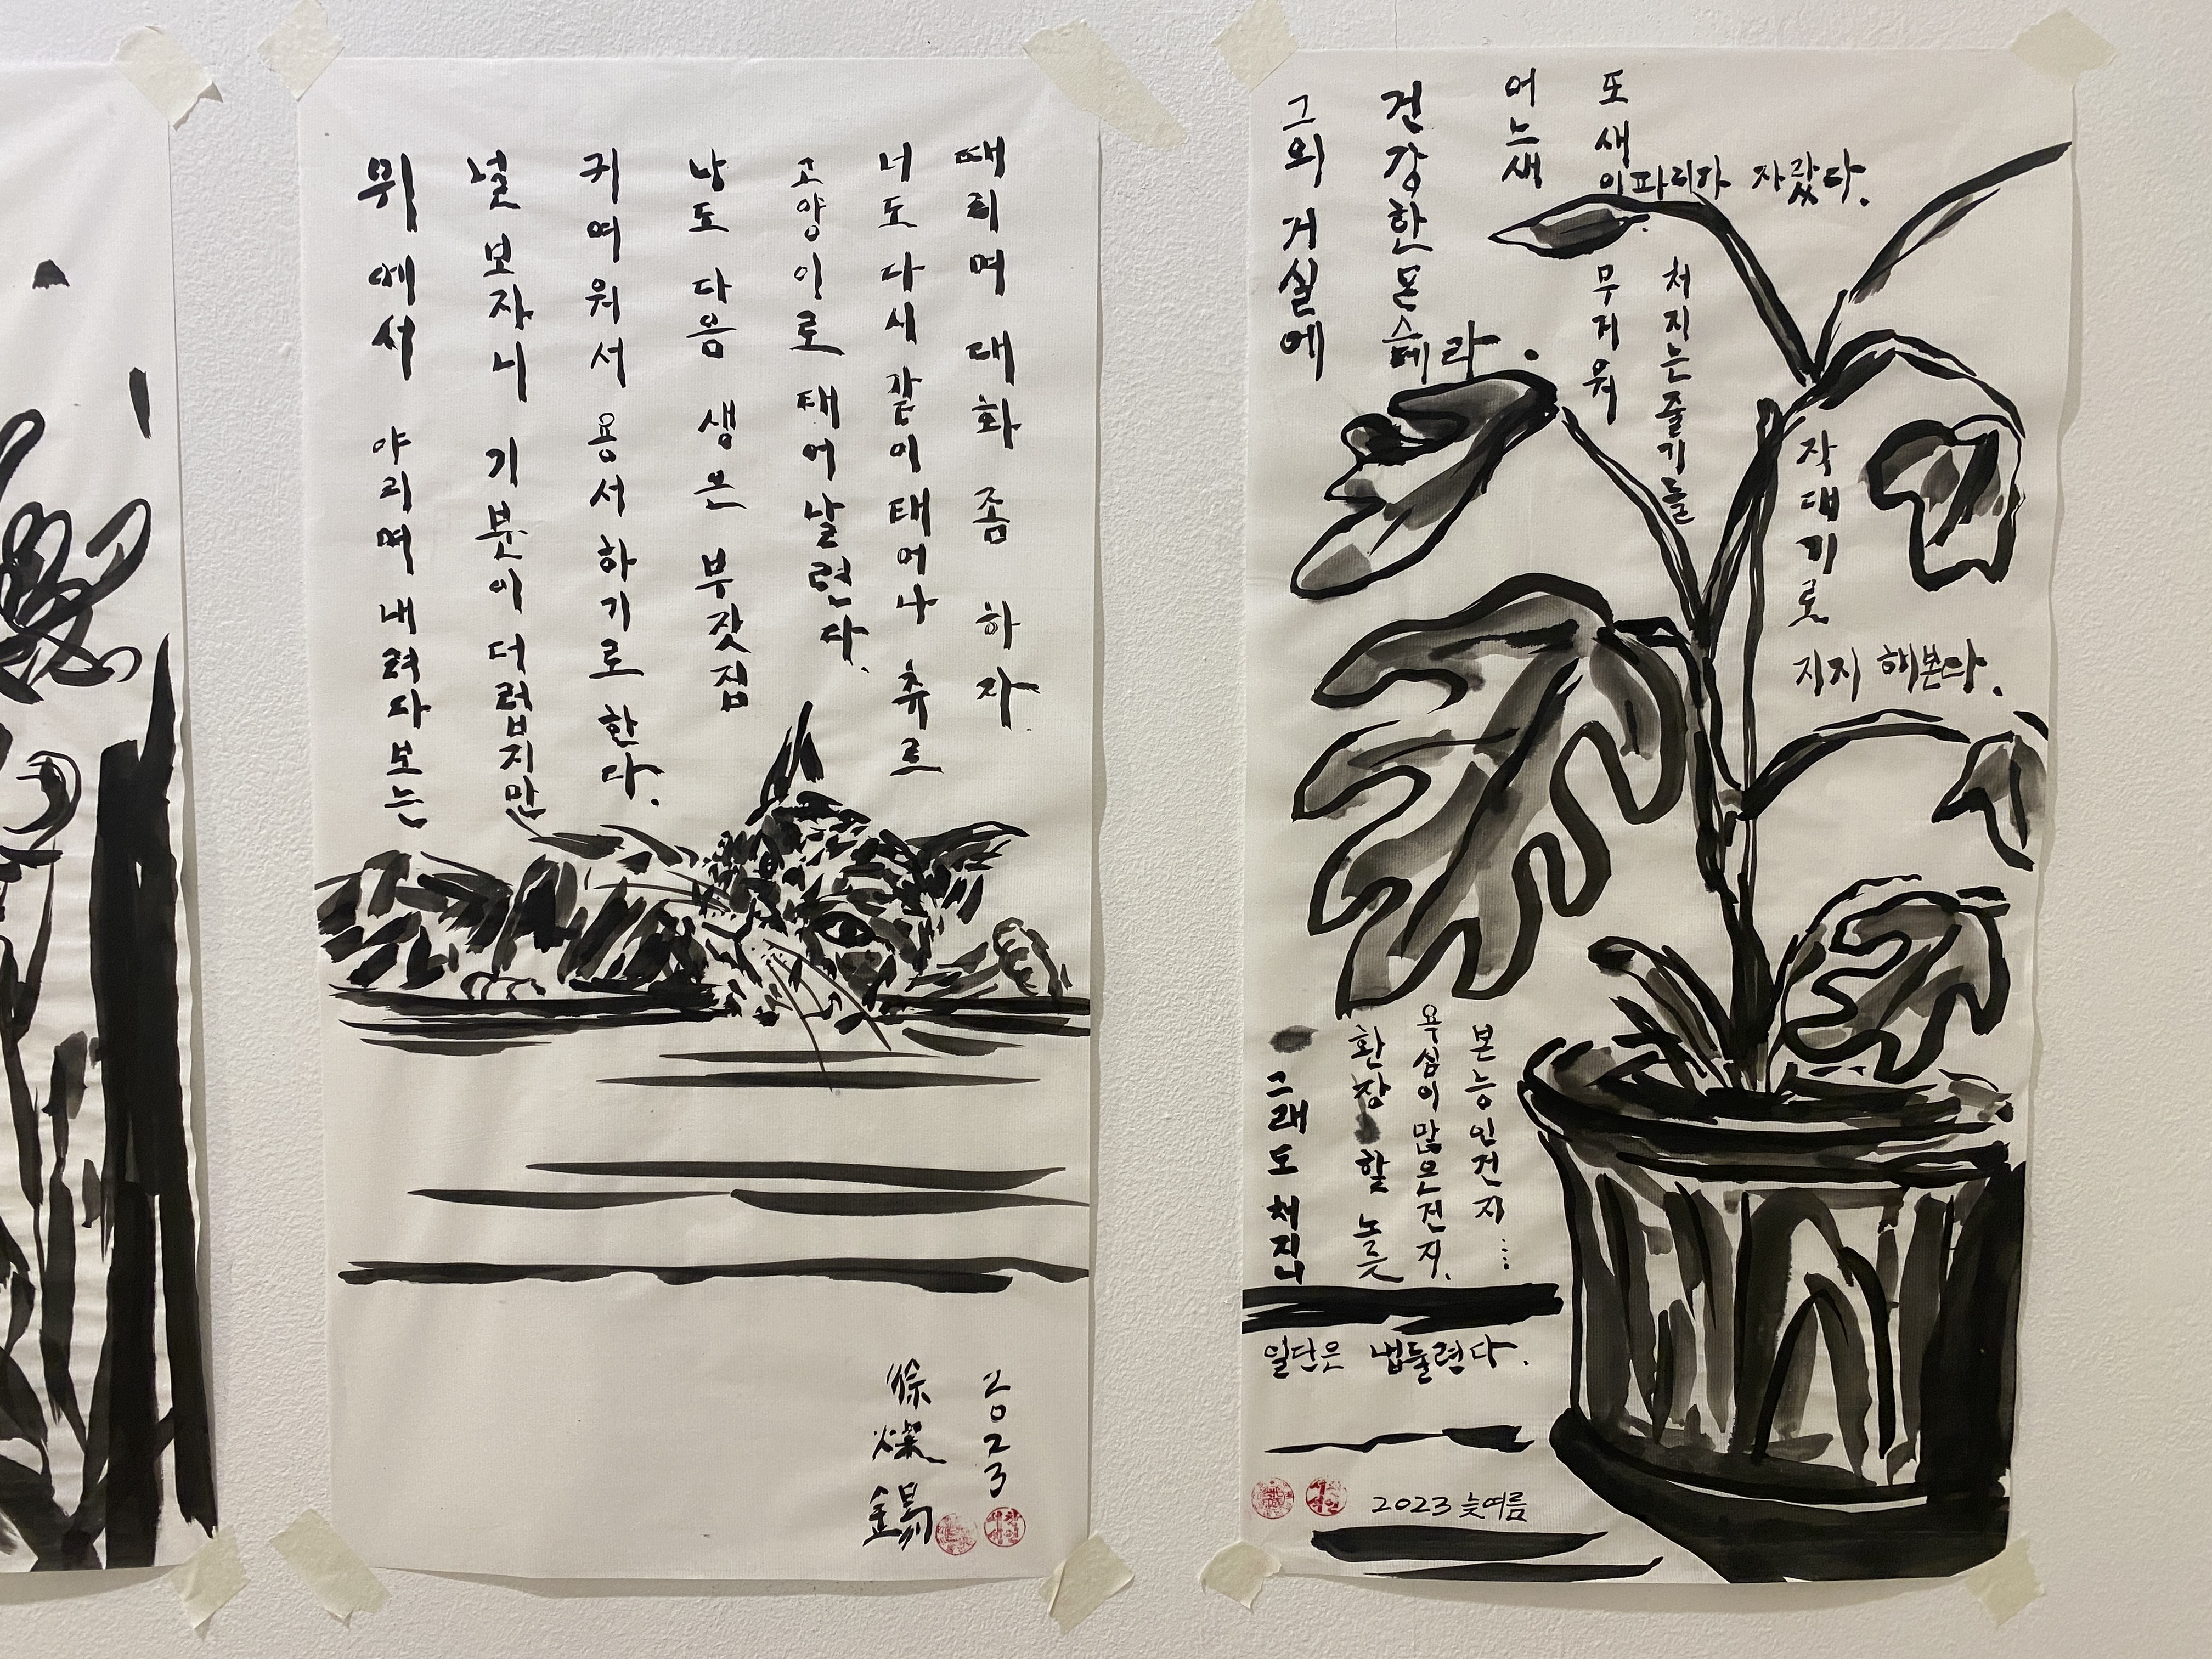 위에서 야리며 내려다보는
널 보자니 기분이 더럽지만
귀여워서 용서하기로 한다.
낭도 다음 생은 부잣집
고양이로 태어날련다.
너도 다시 같이 태어나 츄르
때리며 대화 좀 하자.
徐燦錫
2023
그의 거실에
건강한 몬스테라.
어느새
또 새 이파리가 자랐다.
무거워
처지는 줄기들
작대기로
지지 해본다.
그래도 처지니
환장할 노릇
욕심이 많은건지,
본능인건지...
일단은 냅둘련다.
2023 늦여름